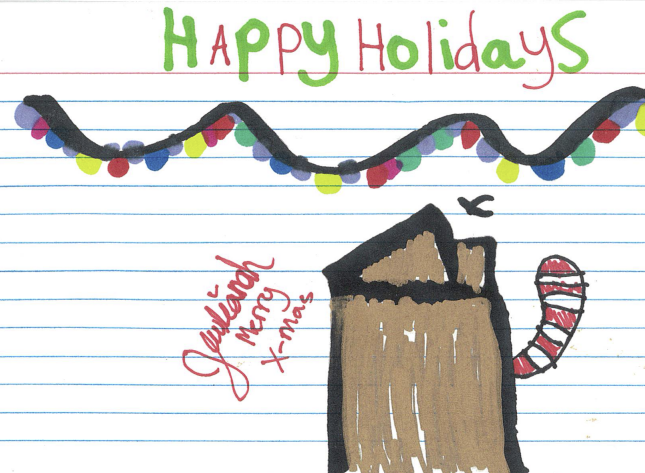 HAPPY HolidayS
Merry
X-mas